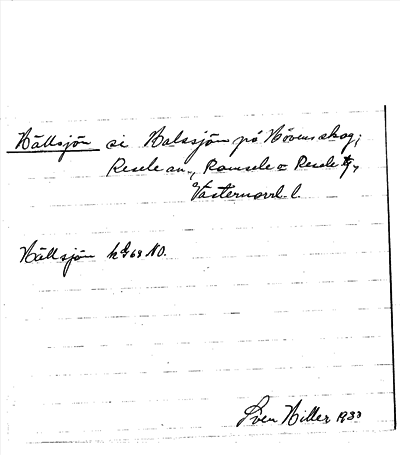 Hällsjön si Halssjön på Hövens skog;
Resele sn., Ramsele o Resele tg,
Västernorrl. l.
Hällsjön kbl 68 NO.
Sven Hiller 1933